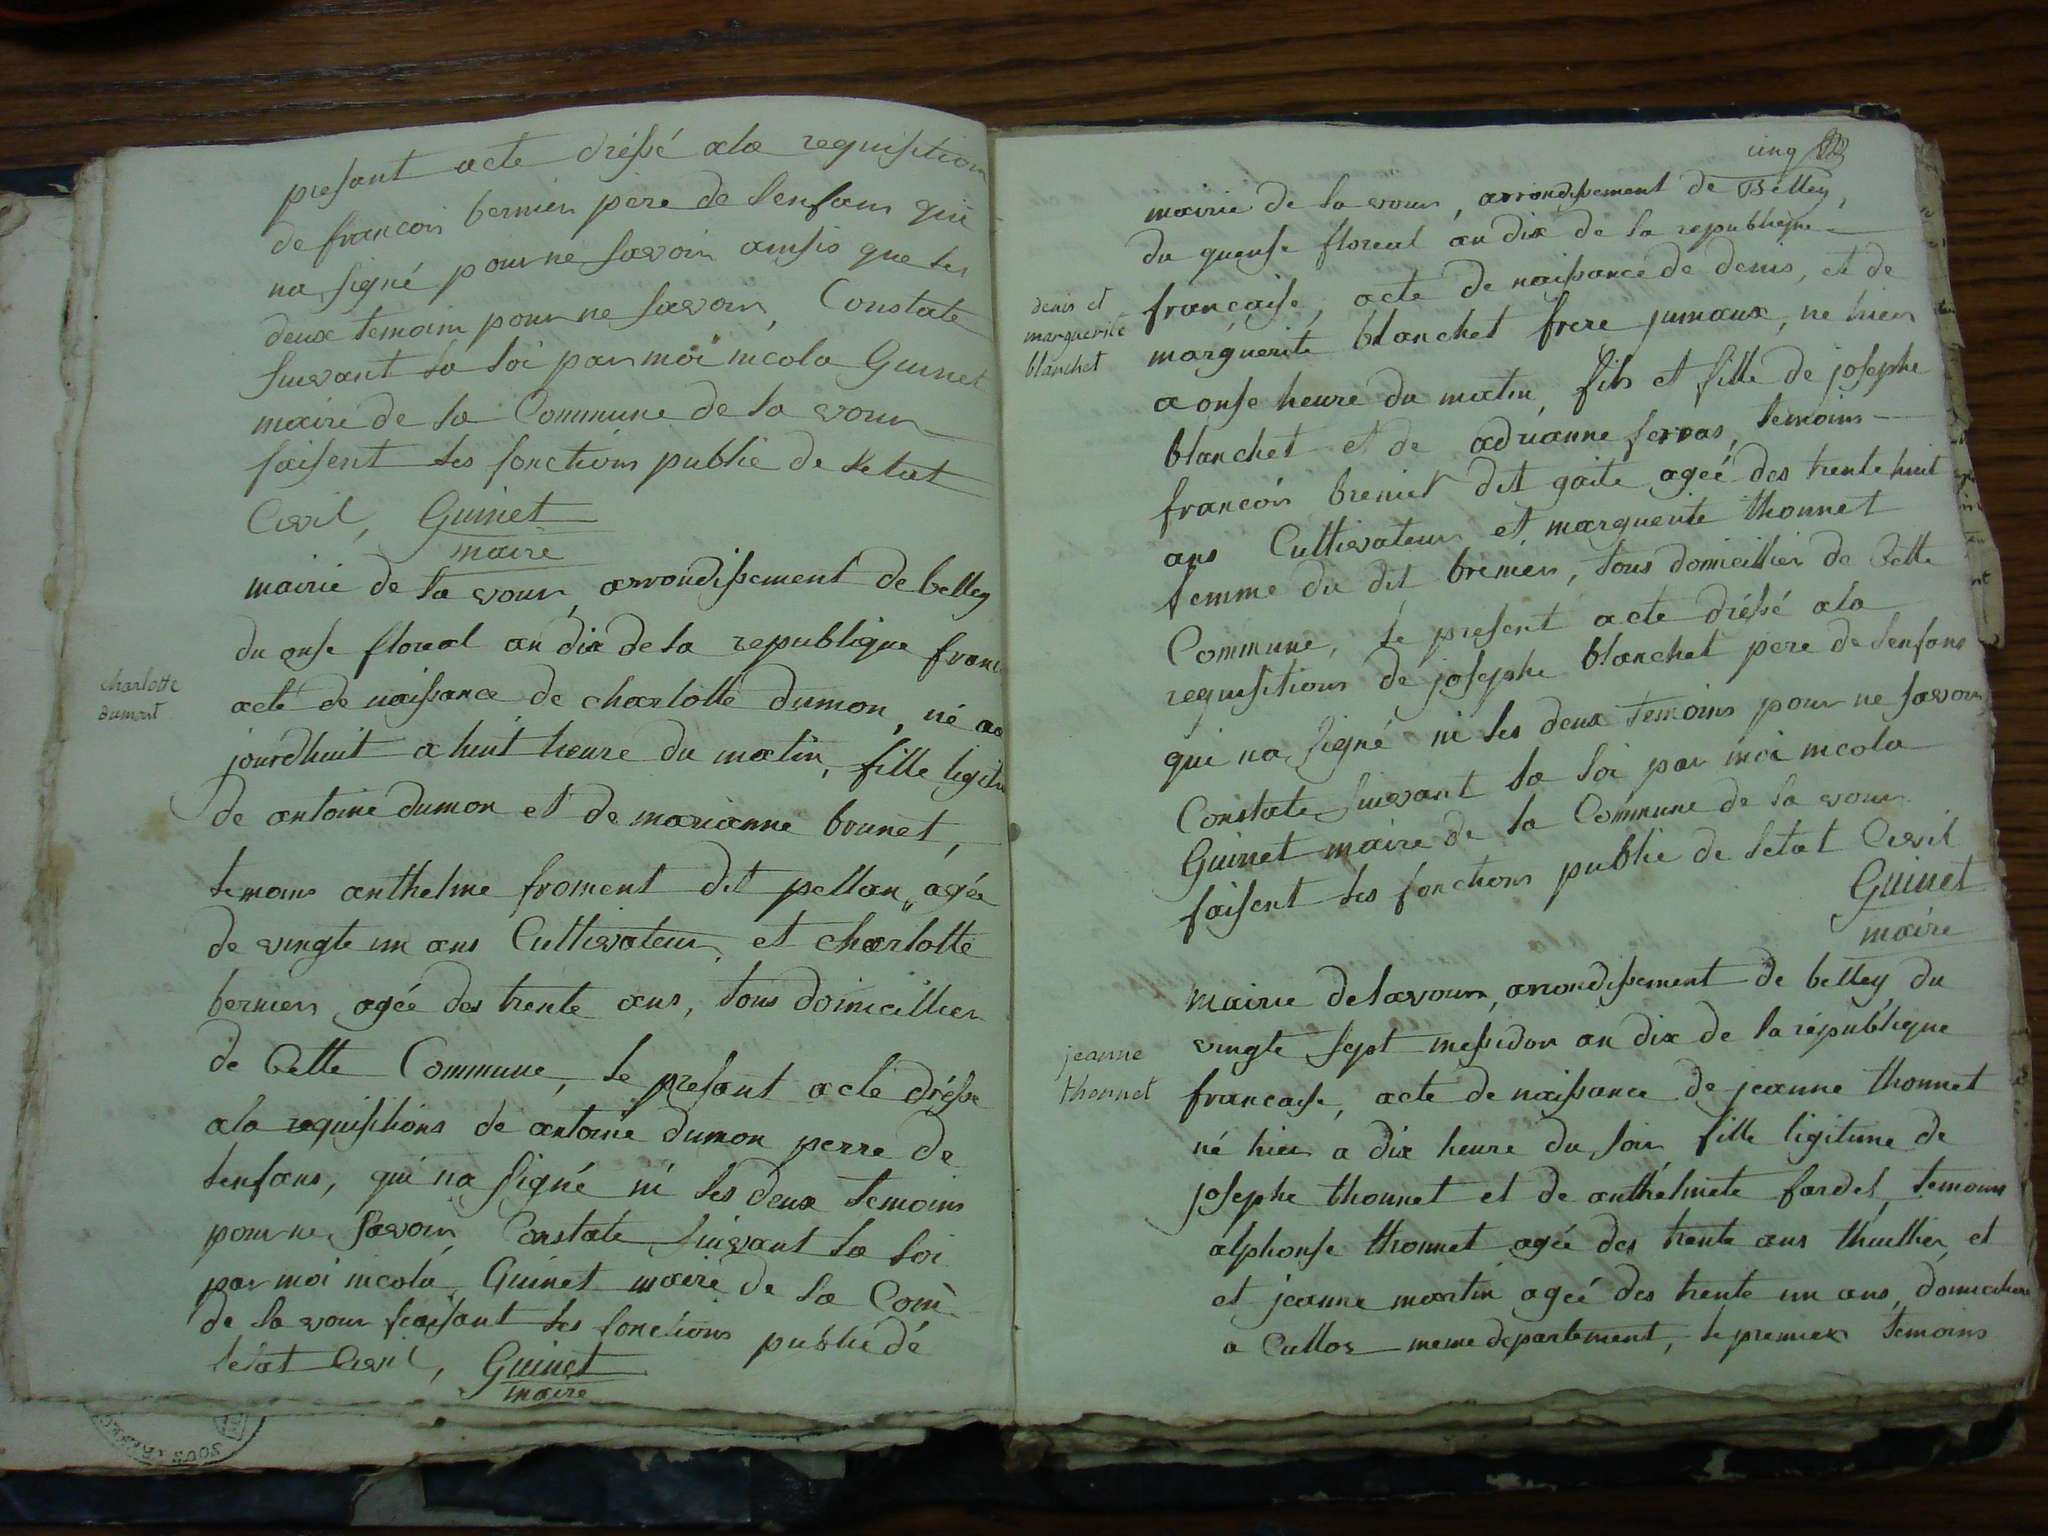 presant acte dréssé ala requisition
de francois bernier père de lenfans qui
na signé pour ne savoir ainsis que les
deux temoins pour ne savoir, Constate
suivant la loi par moi nicola Guinet
maire de la Commune de la vour
faisent les fonctions public de letat
Civil, Guinet
maire
mairie de la vour, arrondissement de belley
du onse floreal an dix de la republique franc
charlotte
dumont
acte de naissance de charlotte dumon, né au
jourdhuit a huit heure du matin, fille legiti
de antoine dumon et de marianne brunet,
temoins anthelme froment dit pellan, agée
de vingte un ans Cultivateur, et charlotte
bernier agée des trente ans, tous domicillier
de Cette Commune, le presant acte drésse
ala requisitions de antoine dumon perre de
lenfans, qui na signé ni les deux temoins
pour ne savoir Constate suivant la loi
par moi nicola Guinet maire de la Com
de la vour faisant les fonctions public dé
letat Civil, Guinet
maire
cinq
mairie de la vour, arrondissement de Belley,
du quense floreal an dix de la republique
denis et
marguerite
blanchet
française, acte de naissance de denis, et de
marguerite blanchet frere jumaux, ne hier
a onse heure du matin, fils et fille de josephe
blanchet et de adrianne servas, temoins
françois brenier dit gaite agée des trente huit
ans Cultivateur et marguerite thonnet
femme du dit brenier, tous domicillier de Cette
Commune, le present acte dréssé ala
requisitions de josephe blanchet pere de lenfans
qui na signé ni les deux temoins pour ne savoir
Constate suivant la loi par moi nicola
Guinet maire de la Commune de la vour
faisent les fonctions public de letat Civil
Guinet
maire
mairie de lavour, arrondissement de belley du
jeanne
thonnet
vingte sept messidor an dix de la république
francaise, acte de naissance de jeanne thonnet
né hier a dix heure du soir fille ligitime de
josephe thonnet et de anthelmete fardel, temoins
alphonse thonnet agée des trente ans thuillier, et
et jeanne martin agée des trente un ans, domicilier
a Culloz meme departement, le premier temoins